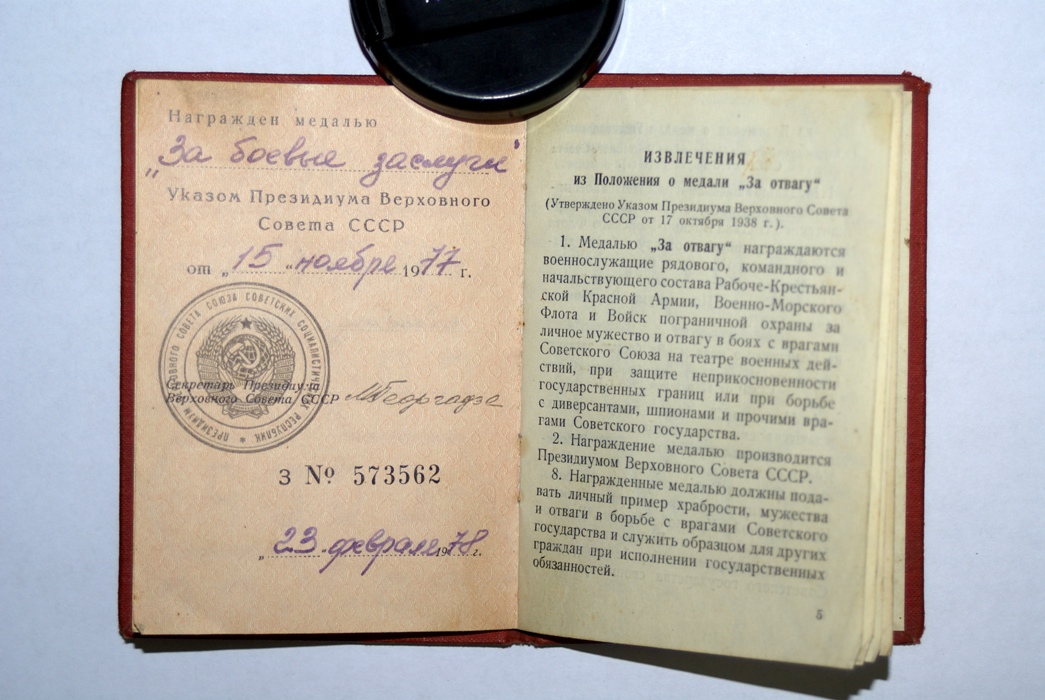 Награжден медалью
„За боевые заслуги"
Указом Президиума Верховного
Совета СССР
от „15" ноября 1977 г.
ПРЕЗИДИУМ ВЕРХОВНОГО СОВЕТА СОЮЗА СОВЕТСКИХ СОЦИАЛИСТИЧЕСКИХ РЕСПУБЛИК
Секретарь Президиума
Верховного Совета СССР МГеоргадзе
З № 573562
„23 февраля 1978 г.
ИЗВЛЕЧЕНИЯ
из Положения о медали „За отвагу"
(Утверждено Указом Президиума Верховного Совета
СССР от 17 октября 1938 г.).
1. Медалью „За отвагу" награждаются
военнослужащие рядового, командного и
начальствующего состава Рабоче-Крестьян-
ской Красной Армии, Военно-Морского
Флота и Войск пограничной охраны за
личное мужество и отвагу в боях с врагами
Советского Союза на театре военных дей-
ствий, при защите неприкосновенности
государственных границ или при борьбе
с диверсантами, шпионами и прочими вра-
гами Советского государства.
2. Награждение медалью производится
Президиумом Верховного Совета СССР.
8. Награжденные медалью должны пода-
вать личный пример храбрости, мужества
и отваги в борьбе с врагами Советского
государства и служить образцом для других
граждан при исполнении государственных
обязанностей.
5